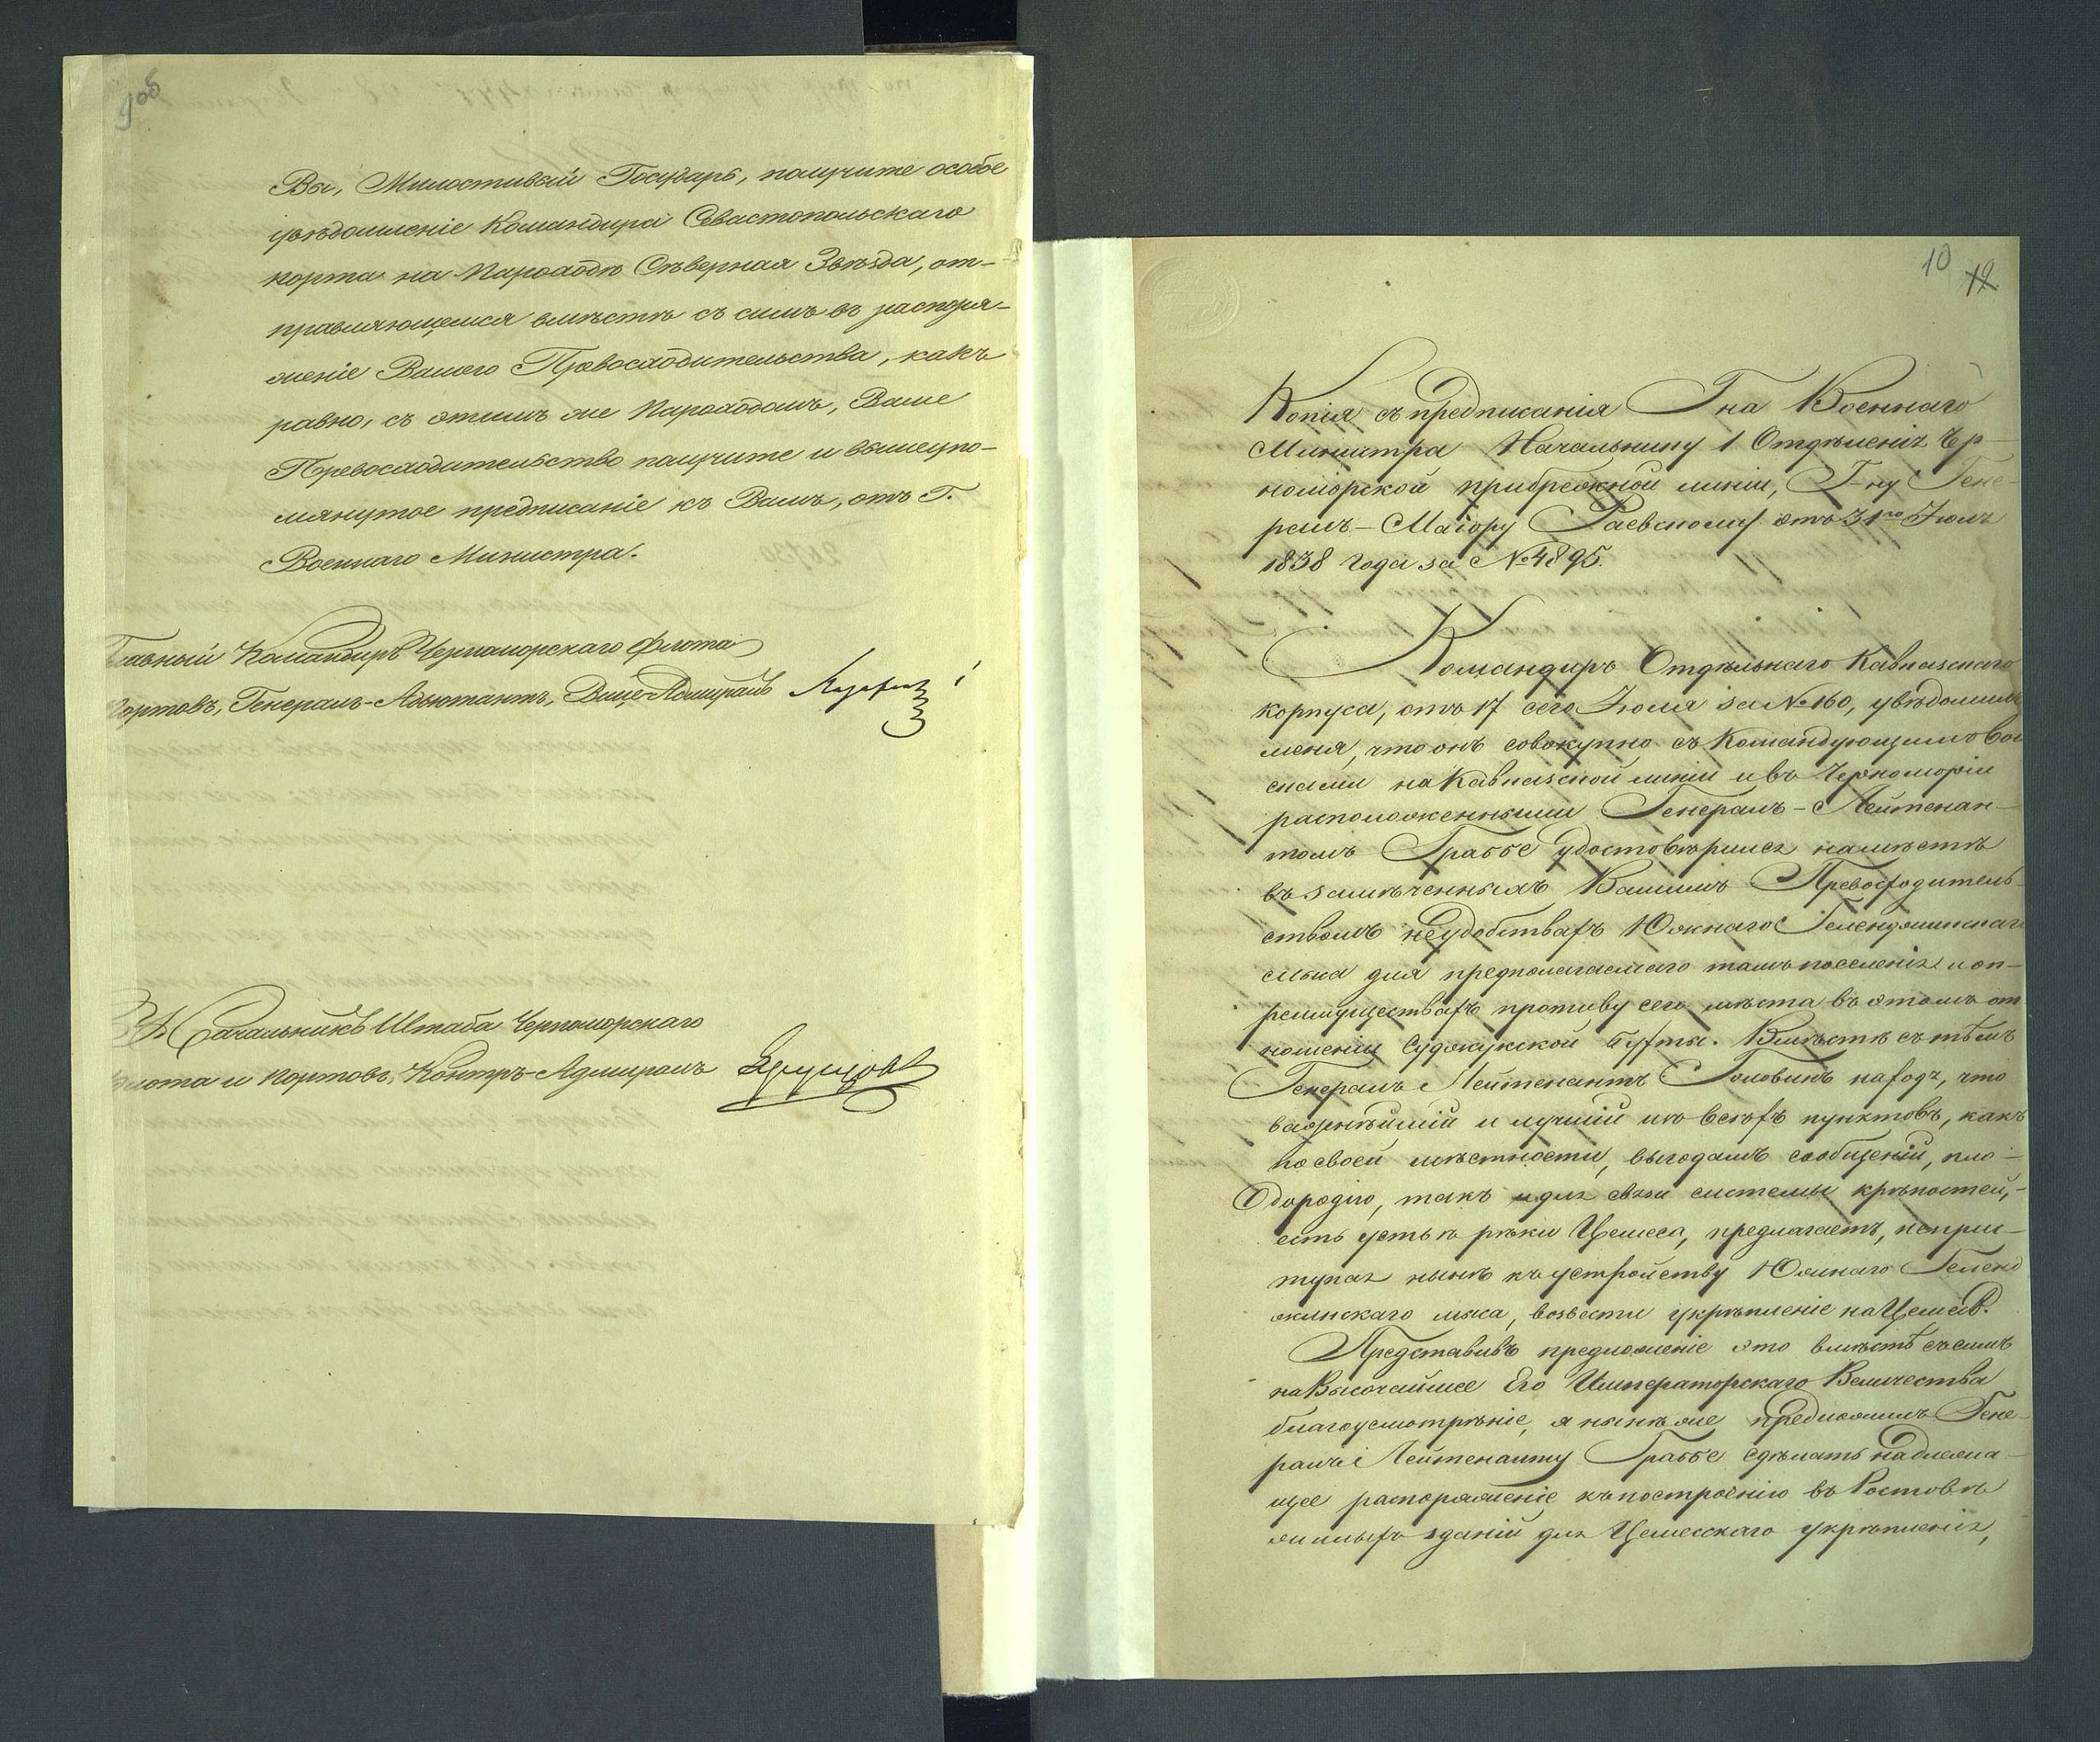 9об
Вы, Милостивый Государь, получите особое
увѣдомленіе Командира Севастопольскаго
порта на Пароходѣ Сѣверная Звѣзда, от-
правляющемся вмѣстѣ съ симъ въ распоря-
женіе Вашего Превосходительства, какъ
равно, съ этимъ же Пароходомъ, Ваше
Превосходительство получите и вышеупо-
мянутое предписаніе къ Вамъ, отъ Г.
Военнаго Министра.
Главный Командиръ Черноморскаго флота
портовъ, Генералъ-Адъютантъ, Вице-Адмиралъ Лазаревъ
Начальникъ Штаба Черноморскаго
флота и портовъ, Контръ-Адмиралъ Хрущовъ
10 12
Копія съ предписанія Гна Военнаго
Министра Начальнику 1 Отдѣленія Чер-
номорской прибрежной линіи, Г-ну Гене-
ралъ-Маіору Раевскому отъ 31го Іюля
1838 года за № 4895.
Командиръ Отдѣльнаго Кавказскаго
корпуса, отъ 17 сего Іюля за № 160, увѣдомилъ
меня, что онъ совокупно съ Командующимъ вой-
сками на Кавказской линіи и въ Черноморіи
расположенными Генералъ-Лейтенан-
томъ Граббе удостовѣрился на мѣстѣ
въ замѣченныхъ Вашимъ Превосходитель-
ствомъ неудобствахъ Южнаго Геленджикскаго
мыса для предполагаемаго тамъ поселенія и оп-
реимуществахъ противу сего мѣста въ этомъ от
ношеніи Суджукской бухты. Вмѣстѣ съ тѣмъ
Генералъ Лейтенантъ Головинъ находя, что
важнѣйшій и лучшій изъ всѣхъ пунктовъ, какъ
по своей мѣстности, выгодамъ сообщеній, пло-
дородію, такъ и для связи системы крѣпостей,-
есть устье рѣки Цемеса, предлагаетъ, неприс-
тупая нынѣ къ устройству Южнаго Геленд
жикскаго мыса, возвести укрѣпленіе на Цемесѣ.
Представивъ предложеніе это вмѣстѣ съ симъ
на Высочайшее Его Императорскаго Величества
благоусмотрѣніе, я нынѣ же предложилъ Гене-
ралъ Лейтенанту Граббе сдѣлать надлежа-
щее распоряженіе къ построенію въ Ростовѣ
жилыхъ зданій для Цемесскаго укрѣпленія,